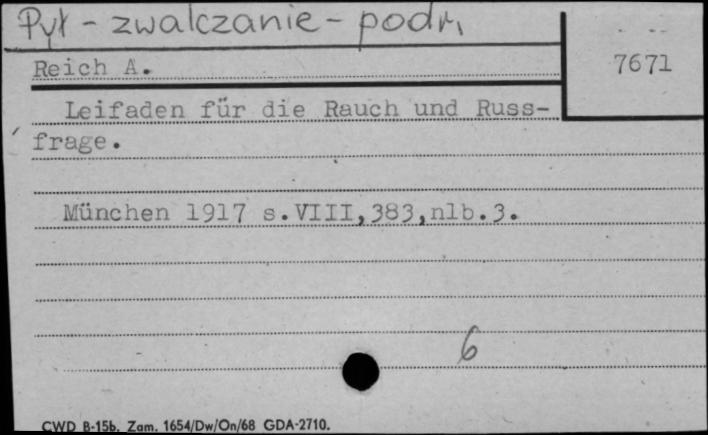 Pył - zwalczanie - podr.
Reich A.
7671
Leifaden für die Rauch und Russ-
frage.
München 1917 s.VIII,383,nlb.3.
6
CWD B-15b. Zam. 1654/Dw/On/68 GDA-2710.